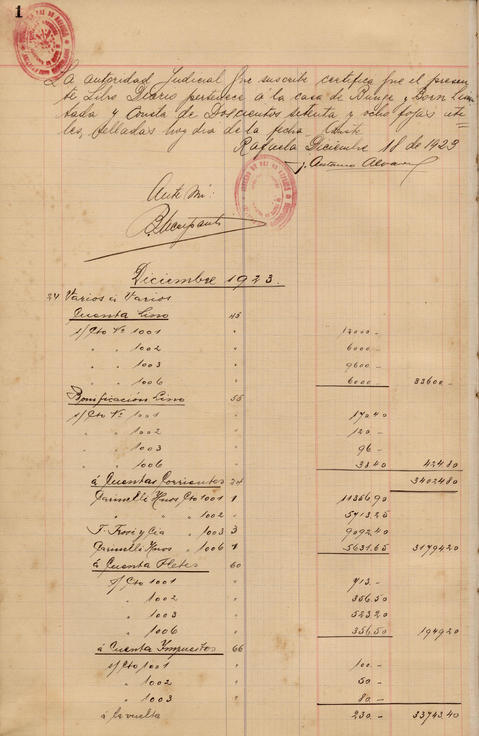 1
La autoridad Judicial que suscribe certifica que el presen-
te Libro Diario pertenece á la casa de Bunge y Born Limi-
tada y consta de Doscientos setenta y ocho fojas úti-
les, selladas hoy dia de la fecha. Conste
Rafaela Diciembre 18 de 1923
J. Antonio Alvarez
Ante mi:
Diciembre 1923.
24 Varios á Varios
Cuenta Lino 45
s/Cto Nº 1001 " 12000 -
" " 1002 " 6000 -
" " 1003 " 9600 -
" " 1006 " 6000 - 33600 -
Bonificación Lino 55
s/Cto Nº 1001 " 170 40
" " 1002 " 120 -
" " 1003 " 96 -
" " 1006 " 38 40 424.80
34024 80
á Cuentas Corrientes 24
Hnos Cto 1001 1 11356,90
" " 1002 " 5713,25
F. y Cia " 1003 3 9092,40
Hnos " 1006 1 5631,65 31794 20
á Cuenta Fletes 60
s/Cto 1001 " 713 -
" " 1002 " 356,50
" " 1003 " 523 20
" " 1006 " 356,50 1949 20
á Cuenta Impuestos 66
s/Cto 1001 " 100 -
" " 1002 " 50 -
" " 1003 " 80 -
á la vuelta 230 - 33743.40